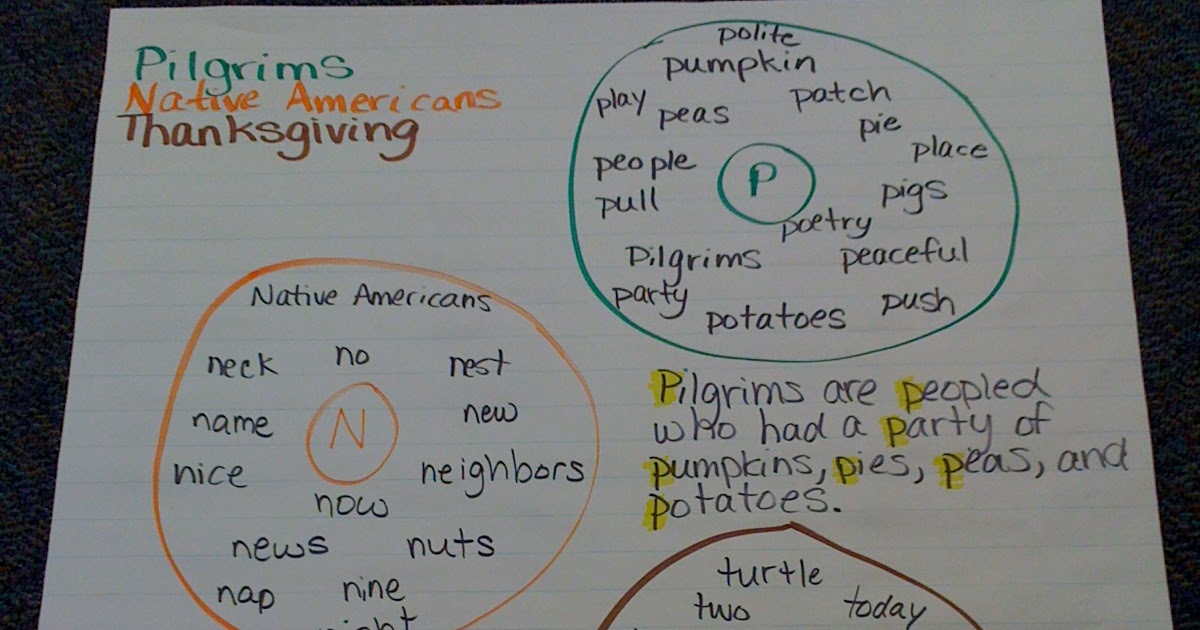 Pilgrims
Native Americans
Thanksgiving
polite
pumpkin
play peas patch
pie
place
people
pull
P
pigs
poetry
Pilgrims peaceful
party
potatoes push
Native Americans
neck no nest
name N new
nice neighbors
now
news nuts
nap nine
Pilgrims are peopled
who had a party of
pumpkins, pies, peas, and
potatoes.
turtle
two today